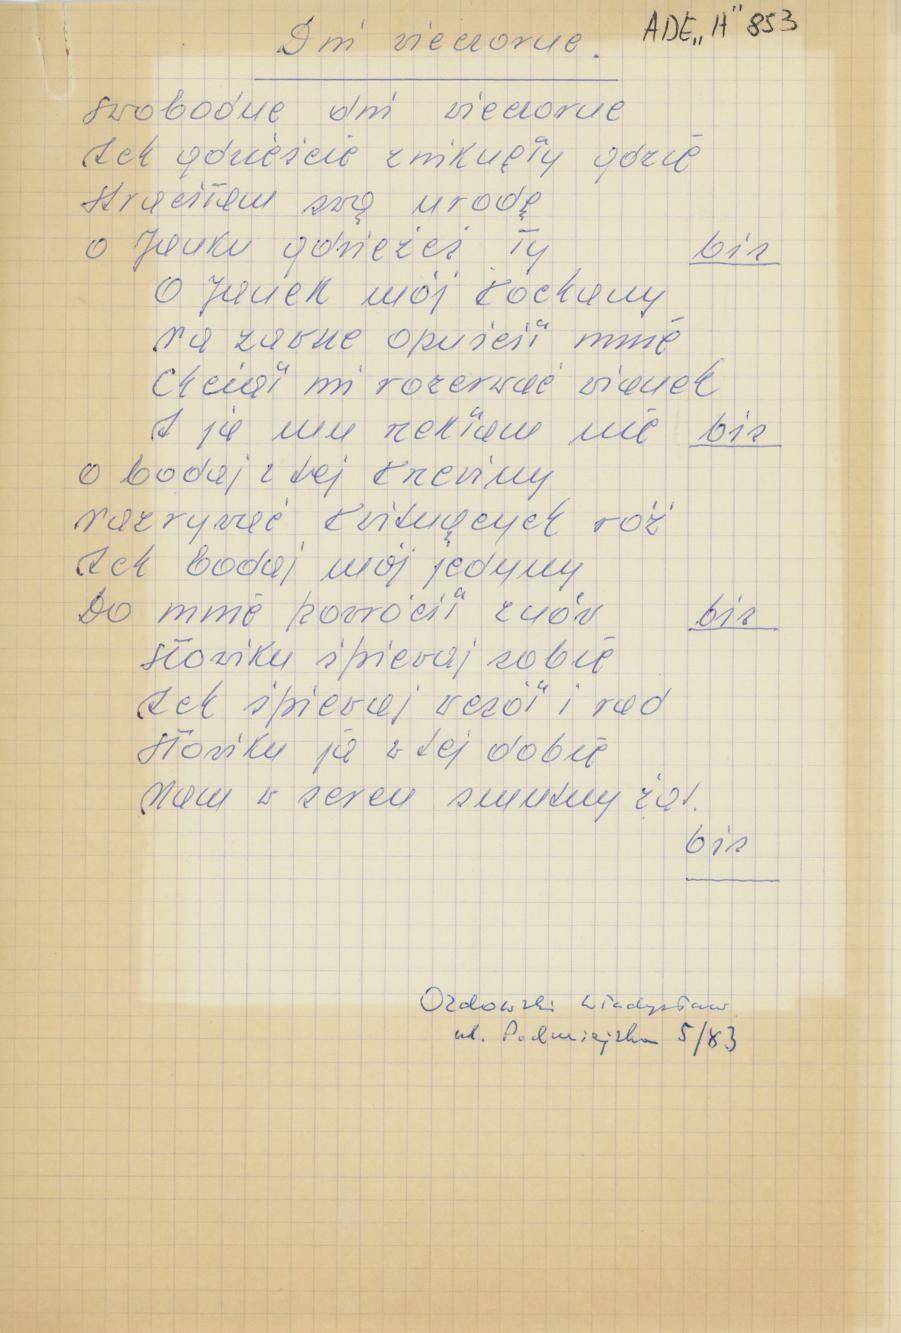 ADE„H" 853
Dni wieczorne.
Swobodne dni wieczorne
Ach gdzieście zniknęły gdzie
Straciłam swą urodę
o Janku gdzieżeś ty bis
O Janek mój kochany
na zawsze opuścił mnie
Chciał mi rozerwać wianek
A ja mu rzekłam nie bis
o bodaj z tej krzewiny
nazrywać kwitnących róż
Ach bodaj mój jedyny
Do mnie powrócił znów bis
Słowiku śpiewaj sobie
Ach śpiewaj wesół i rad
Słowiku ja w tej dobie
Mam w sercu smutny żal.
bis
Ozdowski Władysław
ul. Podmiejska 5/83